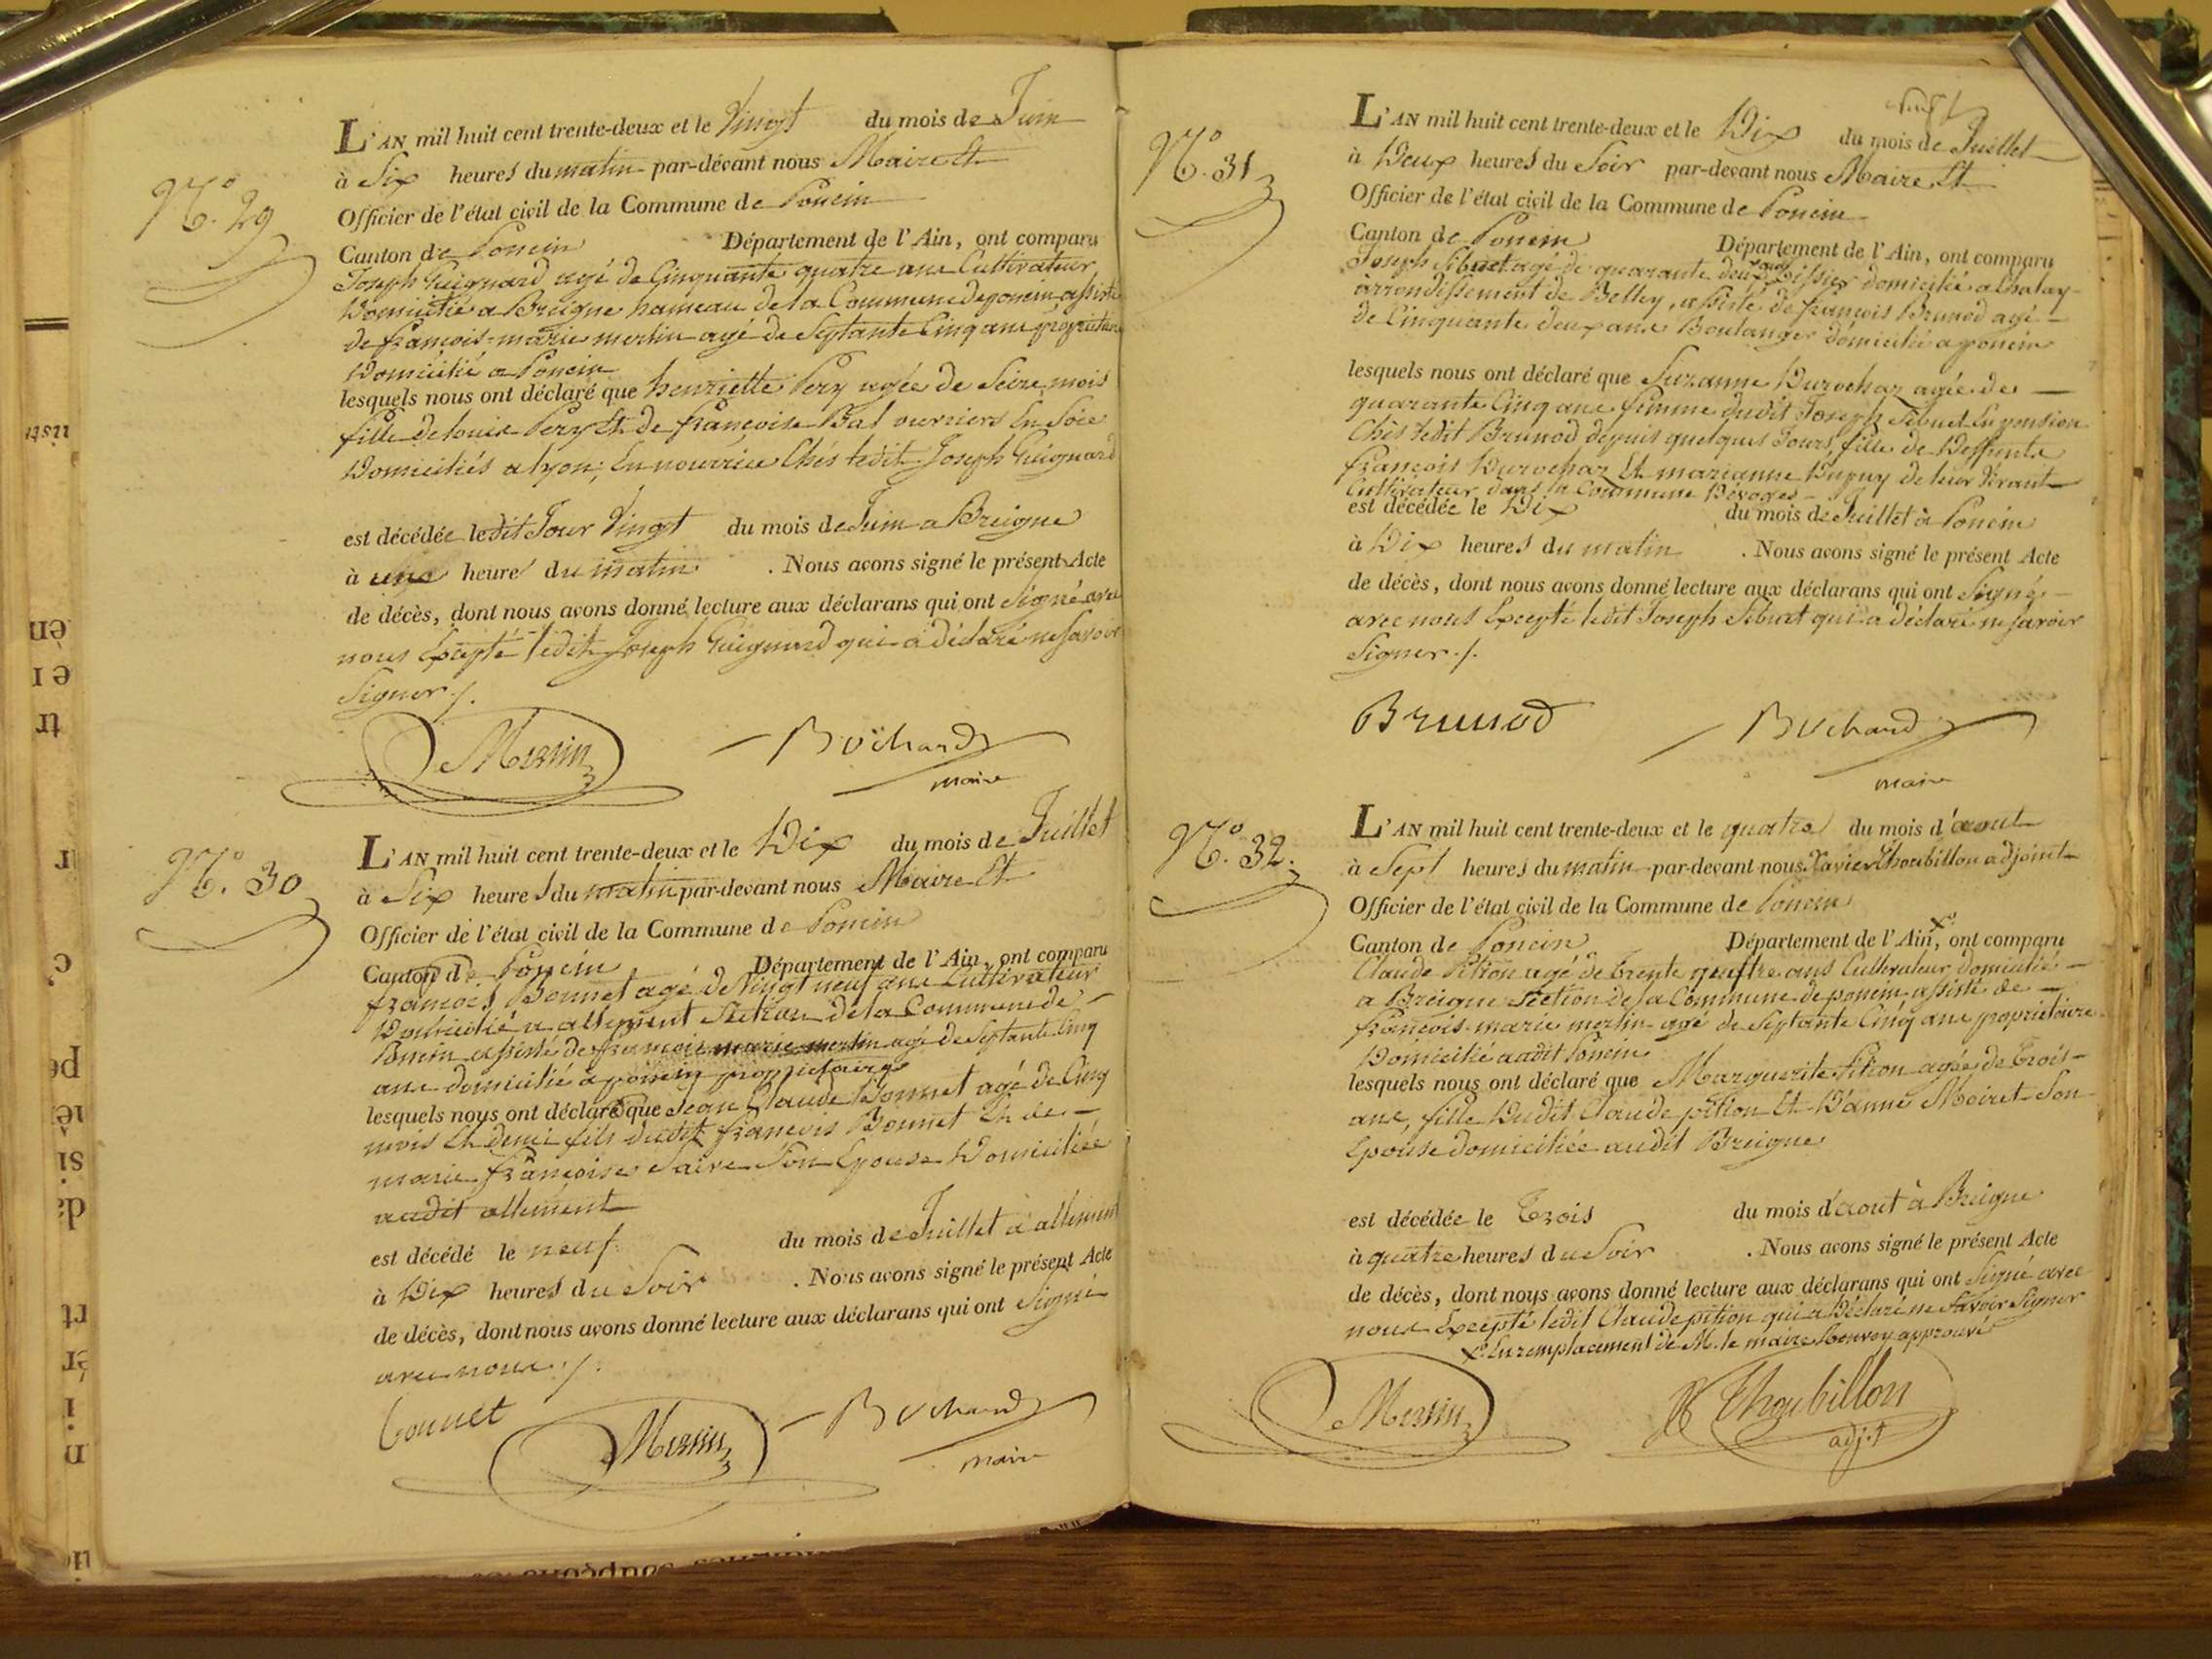 N.º 29
L'AN mil huit cent trente-deux et le Vingt du mois de Juin
à Six heures du matin par-devant nous Maire Et
Officier de l'état civil de la Commune de Poncin
Canton de Poncin Département de l'Ain, ont comparu
Joseph Guignard agé de Cinquante quatre ans Cultivateur
Domicilié a Breigne hameau de la Commune de poncin assisté
de françois-marie merlin agé de Septante Cinq ans propriétaire
Domicilié a Poncin
lesquels nous ont déclaré que henriette Pery agée de Seize mois
fille de louis Pery Et de françoise Bal ouvriers En Soie
Domiciliés a lyon, En nourrice Chés ledit Joseph Guignard
est décédée ledit Jour Vingt du mois de Juin a Breigne
à une heure du matin . Nous avons signé le présent Acte
de décès, dont nous avons donné lecture aux déclarans qui ont Signé avec
nous Excepté ledit Joseph Guignard qui a déclaré ne savoir
Signer ./.
Merlin Bochard
maire
N.º 30
L'AN mil huit cent trente-deux et le Dix du mois de Juillet
à Six heures du matin par-devant nous Maire Et
Officier de l'état civil de la Commune de Poncin
Canton de Poncin Département de l'Ain, ont comparu
françois Bonnet agé de Vingt neuf ans Cultivateur
Domicilié a allement Section de la Commune de
Poncin assisté de françois marie merlin agé de Septante Cinq
ans domicilié a poncin propriétaire
lesquels nous ont déclaré que Jean Claude Bonnet agé de Cinq
mois Et demi fils dudit françois Bonnet Et de
marie françoise Son Epouse Domiciliée
audit allement
est décédé le neuf du mois de Juillet a allement
à Dix heures du Soir . Nous avons signé le présent Acte
de décès, dont nous avons donné lecture aux déclarans qui ont Signé
avec nous ./.
bonnet Merlin Bochard
maire
N.º 31
L'AN mil huit cent trente-deux et le Dix du mois de Juillet
à Deux heures du Soir par-devant nous Maire Et
Officier de l'état civil de la Commune de Poncin
Canton de Poncin Département de l'Ain, ont comparu
Joseph Sibuet agé de quarante deux ans domicilié a Chalay
arrondissement de Belley, assisté de françois Brunod agé
de Cinquante deux ans Boulanger domicilié a poncin
lesquels nous ont déclaré que Suzanne Durochar agée de
quarante Cinq ans femme dudit Joseph Sibuet En pension
Chés ledit Brunod depuis quelques Jours, fille de Deffunts
françois Durochar Et marianne Dupuy de leur Vivant
Cultivateur dans la Commune
est décédée le Dix du mois de Juillet à Poncin
à Dix heures du matin . Nous avons signé le présent Acte
de décès, dont nous avons donné lecture aux déclarans qui ont Signé
avec nous Excepté ledit Joseph Sibuet qui a déclaré ne savoir
Signer ./.
Brunod Bochard
maire
N.º 32.
L'AN mil huit cent trente-deux et le quatre du mois d'aout
à Sept heures du matin par-devant nous Xavier Thoubillon adjoint
Officier de l'état civil de la Commune de Poncin
Canton de Poncin Département de l'Ain, ont comparu
Claude Pition agé de trente quatre ans Cultivateur domicilié
a Breigne Section de la Commune de poncin assisté de
françois-marie merlin agé de Septante Cinq ans propriétaire
Domicilié audit Poncin
lesquels nous ont déclaré que Marguerite Pition agée de trois
ans, fille Dudit Claude pition Et D'anne Moiret Son
Epouse domiciliée audit Breigne
est décédée le Trois du mois d'aout à Breigne
à quatre heures du Soir . Nous avons signé le présent Acte
de décès, dont nous avons donné lecture aux déclarans qui ont Signé avec
nous Excepté ledit Claude pition qui a Déclaré ne Savoir Signer
En remplacement de M. le maire Renvoy approuvé
Merlin Thoubillon
adj.t